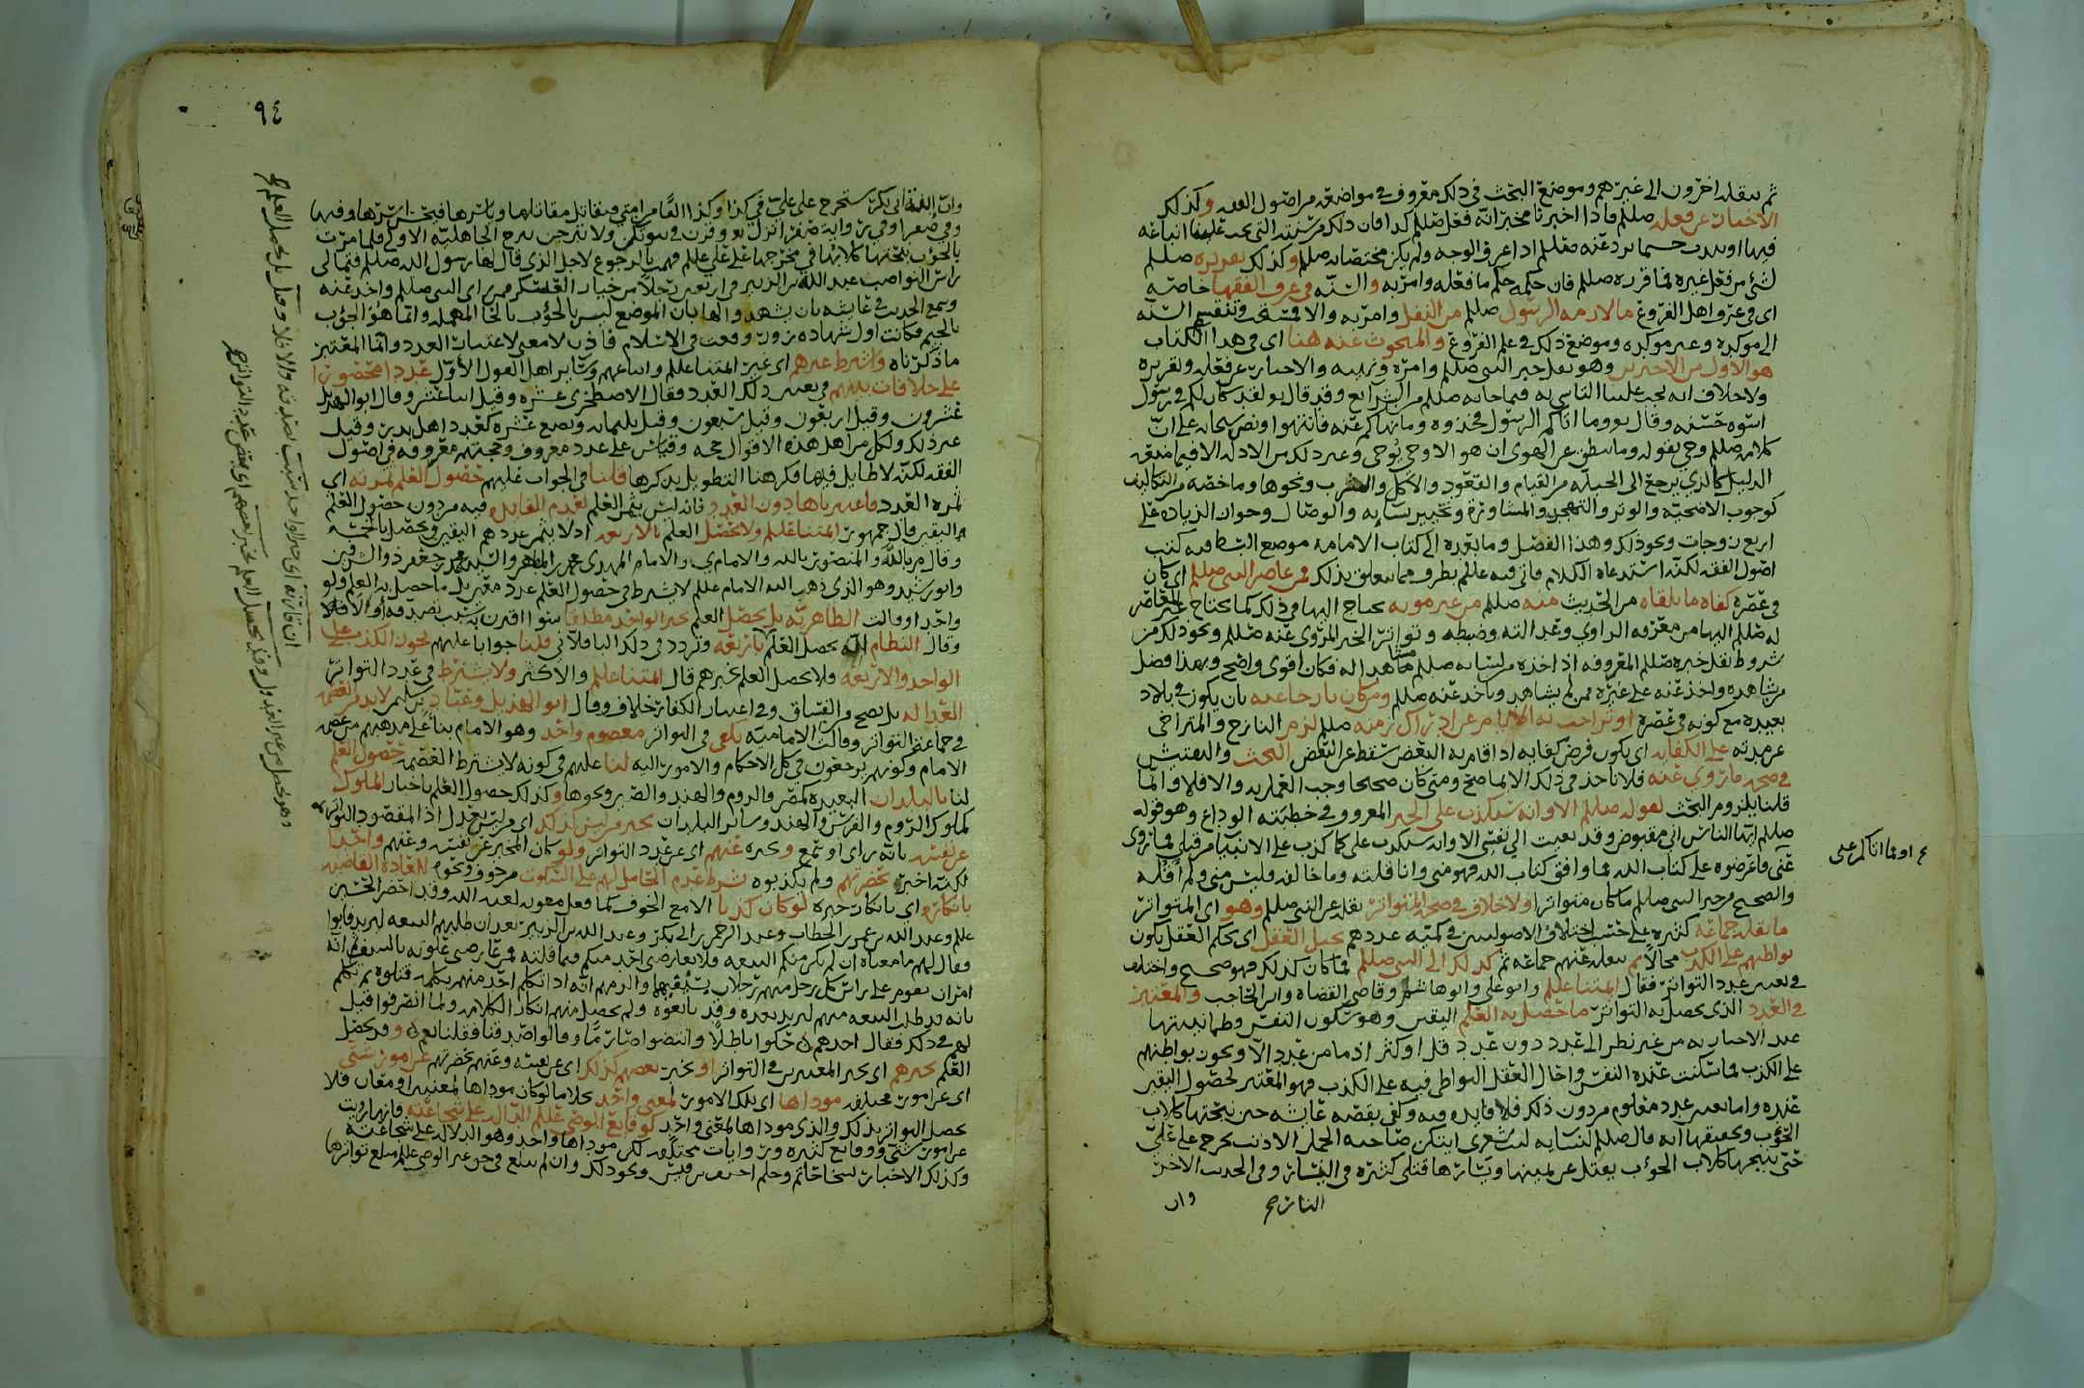 ثم ينقله اخرون الى غيرهم وموضع البحث في ذلك معروف في مواضعه من اصول الفقه وكذلك
الاخبار عن فعله صللم فاذا اخبرنا مخبر انه فعل صللم كذا فان ذلك من سنته التي يجب علينا اتباعه
فيها او يندب حسبما يرد عنه صللم اذا عرف الوجه ولم يكن مختصا به صللم وكذلك تقريره صللم
لشيء من فعل غيره فما قرره صللم فان حكمه حكم ما فعله وامر به والسنه في عرف الفقها خاصه
اي في عرف اهل الفروع ما لازمه الرسول صللم من النفل وامر به والا فمستحب وتنقسم السنه
الى موكده وغير موكده وموضع ذلك في علم الفروع والمبحوث عنه هنا اي في هذا الكتاب
هو الاول من الاخيرين وهو نقل خبر النبي صللم وامره ونهيه والاخبار عن فعله وتقريره
ولا خلاف انه يجب علينا التاسي به فيما جا به صللم من الشرائع وقد قال تع لقد كان لكم في رسول
اسوه حسنه وقال تع وما اتاكم الرسول فخذوه وما نهاكم عنه فانتهوا ونص سبحانه على ان
كلامه صللم وحي بقوله وما ينطق عن الهوى ان هو الا وحي يوحى وغير ذلك من الادله الا فيما خصه
الدليل كالذي يرجع الى الجبله من القيام والقعود والاكل والشرب ونحوها وما خصه من التكاليف
كوجوب الاضحيه والوتر والتهجد والمشاوره وتخيير نسايه والوصال وجواز الزياده على
اربع زوجات ونحو ذلك وهذا الفصل وما بعده الى كتاب الامامه موضع البسط فيه كتب
اصول الفقه لكنه استدعاه الكلام فاتى فيه عللم بطرف مما يتعلق بذلك فمن عاصر النبي صللم اي كان
في عصره كفاه ما تلقاه من الحديث منه صللم من غير مونه يحتاج اليها في ذلك كما يحتاج غير المعاصر
له صللم اليها من معرفه الراوي وعدالته وضبطه وتواتر الخبر المروي عنه صللم ونحو ذلك من
شروط نقل خبره صللم المعروفه اذ اخذه من لسانه صللم مشاهدا له فكان اقوى واضح وبهذا فضل
من شاهده واخذ عنه على غيره ممن لم يشاهد وياخذ عنه صللم ومن كان نازحا عنه بان يكون في بلاد
بعيده مع كونه في عصره او تراخت به الايام عن ادراك زمنه صللم لزم النازح والمتراخي
عن مدته على الكفايه اي يكون فرض كفايه اذا قام به البعض سقط عن البعض البحث والتفتيش
في صحه ما روي عنه فلا ناخذ في ذلك الا بما صح ومتى كان صحيحا وجب العمل به والا فلا وانما
قلنا يلزم البحث لقوله صللم الا وانه سيكذب علي الخبر المعروف في خطبته الوداع وهو قوله
صللم ايها الناس اني مقبوض وقد نعيت الي نفسي الا وانه سيكذب علي كما كذب على الانبياء من قبلي فما روي
عني فاعرضوه على كتاب الله فما وافق كتاب الله فهو مني وانا قلته وما خالفه فليس مني ولم اقله
والصحيح من خبر النبي صللم ما كان متواترا ولا خلاف في صحه المتواتر نقله عن النبي صللم وهو اي المتواتر
ما نقله جماعه كثيره على حسب اختلاف الاصوليين في كميه عددهم يحيل العقل اي يحكم العقل بكون
تواطيهم على الكذب محالا ثم ينقله عنهم جماعه ثم كذلك الى النبي صللم فما كان كذلك فهو صحيح واختلف
في تعيين عدد التواتر فقال ائمتنا عللم وابو علي وابو هاشم وقاضي القضاه وابن الحاجب والمعتبر
في العدد الذي يحصل به التواتر ما حصل به العلم اليقين وهو سكون النفس وطمانينتها
عند الاخبار به من غير نظر الى عدد دون عدد قل او كثر اذ ما من عدد الا ويجوز تواطيهم
على الكذب فما سكنت عنده النفس واحال العقل التواطي فيه على الكذب فهو المعتبر لحصول اليقين
عنده واما تعيين عدد معلوم من دون ذلك فلا فايده فيه وكفى بقصه عايشه حين نبحتها كلاب
الحوب وتحقيقها انه قال صللم لنسايه ليت شعري ايتكن صاحبه الجمل الادبب تخرج على علي
حتى تنبحها كلاب الحوب يقتل عن يمينها ويسارها قتلى كثيره في النار وفي الحديث الاخر
وان
النازح
ع او بما اتاكم عني
٩٤
وان ابنه ابي بكر ستخرج على علي في كذا وكذا الفا من امتي فيقاتل مقاتلها وياسرها فيحسن اسرها وفيها
وفي صفرا وفي رواية صفرا نزل تع وقرن في بيوتكن ولا تبرجن تبرج الجاهليه الاولى فلما مرت
بالحوب نبحتها كلابها في مخرجها على علي عللم فهمت بالرجوع لاجل الذي قال لها رسول الله صللم فتمالى
راس النواصب عبد الله بن الزبير في اربعين رجلا من خيار العسكر ممن راى النبي صللم واخذ عنه
وسمع الحديث في عايشه بان يشهدوا لها بان الموضع ليس بالحوب بالحا المهمله وانما هو الجوب
بالجيم فكانت اول شهاده زور وقعت في الاسلام فاذن لا معنى لاعتبار العدد وانما المعتبر
ما ذكرناه واشترط غيرهم اي غير ائمتنا عللم واتباعهم وساير اهل القول الاول عددا محصورا
على خلافات بينهم في تعيين ذلك العدد فقال الاصطخري عشره وقيل اثنا عشر وقال ابو الهذيل
عشرون وقيل اربعون وقيل سبعون وقيل ثلثمايه وبضع عشره كعدد اهل بدر وقيل
غير ذلك ولكل من اهل هذه الاقوال حجه وقياس على عدد معروف وحجتهم معروفه في اصول
الفقه لكنه لا طايل فيها فكرهنا التطويل بذكرها قلنا في الجواب عليهم حصول العلم ثمرته اي
ثمره العدد فاعتبرناها دون العدد فانه ليس يثمر العلم لعدم الفايده فيه من دون حصول العلم
واليقين قال جمهور ائمتنا عللم ولا يحصل العلم بالاربعه اذ لا يثمر عددهم اليقين ويحصل بالخمسه
وقال م بالله والمنصور بالله والامام ي والامام المهدي محمد بن المطهر والسيد محمد بن جعفر ذو الشرفين
وابو رشيد وهو الذي ذهب اليه الامام عللم لا يشترط في حصول العلم عدد معين بل ما حصل به العلم ولو
واحدا وقالت الظاهريه بل يحصل العلم بخبر الواحد مطلقا سوا اقترن به سبب يصدقه أو الا فلا
وقال النظام انه يحصل العلم بالاربعه وتردد في ذلك الباقلاني قلنا جوابا عليهم تجوز الكذب على
الواحد والاربعه فلا يحصل العلم بخبرهم قال ائمتنا عللم والاكثر ولا يشترط في عدد التواتر
العداله بل يصح من الفساق وفي اعتبار الكفار خلاف وقال ابو الهذيل وعباد بن سلمن لا بد من العصمه
في جماعه التواتر وقالت الاماميه يكفي في التواتر معصوم واحد وهو الامام بنا على مذهبهم من عصمه
الامام وكونهم يرجعون في كل الاحكام والامور اليه لنا عليهم في كونه لا يشترط العصمه حصول العلم
لنا بالبلدان البعيده كمصر والروم والهند والصين ونحوها وكذلك حصول العلم باخبار الملوك
كملوك الروم والفرس والهند وسائر البلدان بخبر من ليس كذلك اي من ليس بعدل اذا المقصود التواتر
عن نفسه بانه راى او سمع وخبره عنهم اي عن عدد التواتر ولو كان المخبر عن نفسه وعنهم واحدا
لكنه اخبر بحضرتهم ولم يكذبوه شرط عدم الحامل لهم على السكوت من خوف ونحوه للعاده القاضيه
بانكاره اي بانكار خبره لو كان كذبا الا مع الخوف كما فعل معويه لعنه الله وقد احضر الحسين
عللم وعبد الله بن عمر بن الخطاب وعبد الرحمن بن ابي بكر وعبد الله بن الزبير بعد ان طلبهم البيعه ليزيد فابوا
فقال لهم ما معناه ان لم يكن منكم البيعه ولا يعارضني احد منكم فيما قلته فمن عارضني علوته بالسيف ثم انه
امر ان يقوم على راس كل رجل منهم رجلان بسيفيهما والزمهم انه اذا تكلم احد منهم بكلمه قتلوه ثم تكلم
بانه قد طلب البيعه منهم ليزيد بعده وقد بايعوه ولم يحصل منهم انكار الكلامه ولما انصرفوا قيل
لهم في ذلك فقال احدهم حكوا باطلا وانتضوا صارما وقالوا صدقنا فقلنا نعم وقد يحصل
العلم بخبرهم اي بخبر المعتبرين في التواتر او بخبر بعضهم كذلك اي عن نفسه وعنهم بحضرتهم عن امور شتى
اي عن امور مختلفه موداها اي تلك الامور لمعنى واحد بخلاف ما لو كان موداها لمعنيين او معان فلا
يحصل التواتر بذلك والذي موداها لمعنى واحد كوقايع الوصي عللم الداله على شجاعته فانها رويت
عن امور شتى ووقايع كثيره وروايات مختلفه لكن موداها واحد وهو الدلاله على شجاعته
وكذلك الاخبار بسخا حاتم وحلم احنف بن قيس ونحو ذلك وان لم تبلغ في حق غير الوصي عللم مبلغ تواترها
ان قارنه اي خبر الواحد سبب بصدقه والا فلا وقيل بل يحصل العلم
وهو يحصل من غير العدول وقيل يحصل العلم بخبر بعضهم اي بعض عدد التواتر